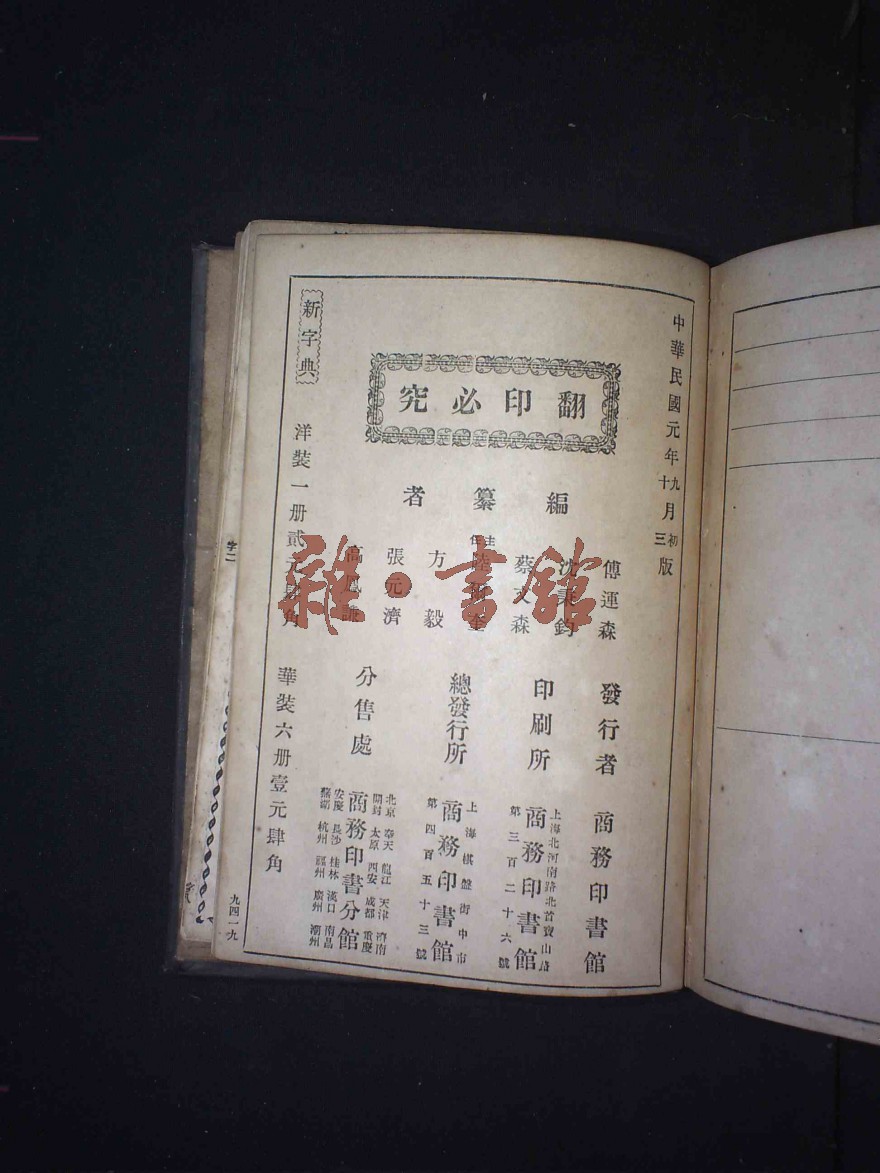 中華民國元年九月初版
十三
翻印必究
編纂者
傅運森
沈秉鈞
蔡文森
陸爾奎
方毅
張元濟
高鳳謙
發行者 商務印書館
印刷所 上海北河南路北首寶山路 商務印書館 第三百二十六號
總發行所 上海棋盤街中市 商務印書館 第四百五十三號
分售處 商務印書分館
北京 奉天 龍江 天津 濟南
開封 太原 西安 成都 重慶
安慶 長沙 桂林 漢口 南昌
蕪湖 杭州 福州 廣州 潮州
新字典
洋裝一册貳元肆角
華裝六册壹元肆角
字二
九四一九
雜·書館